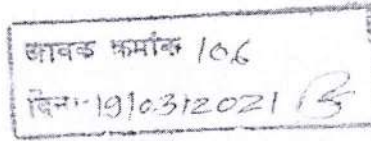 आवक क्रमांक 106
दिनः-19/03/2021